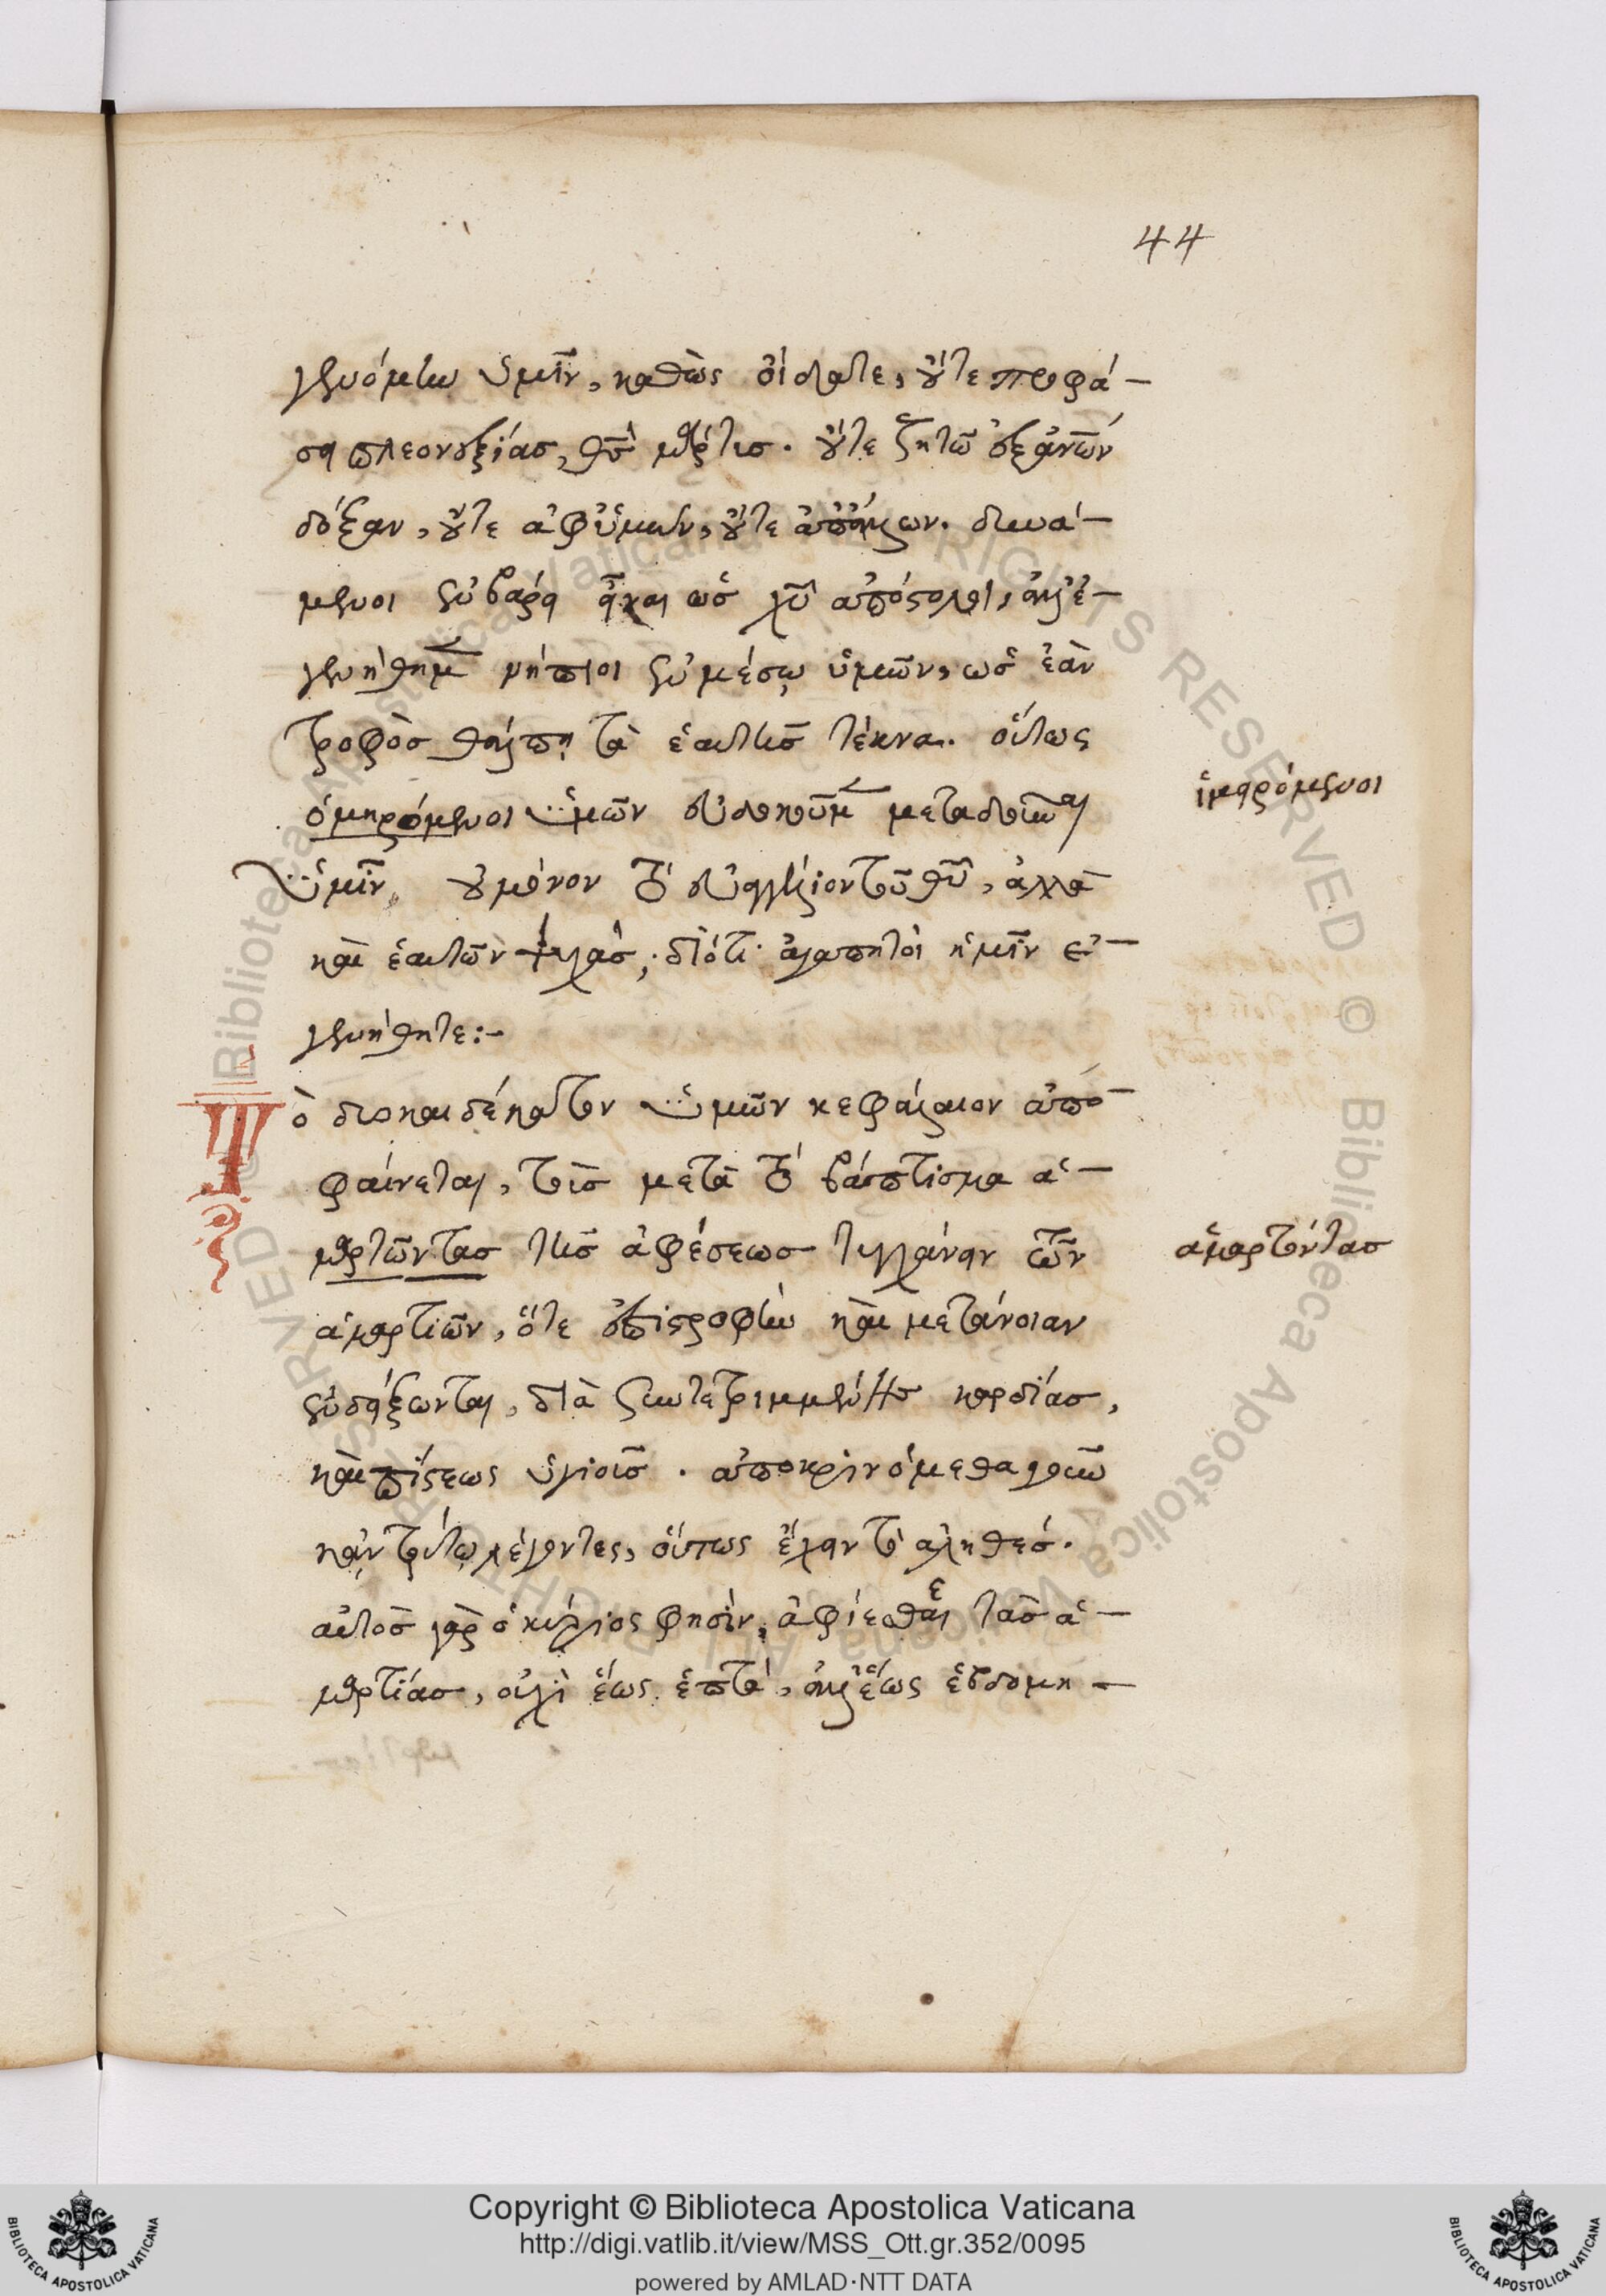 44
γενόμην ὑμῖν, καθὼς οἴδατε, οὔτε προφά-
σει πλεονεξίας, θς μάρτυς. οὔτε ζητῶ ἐξ ἀνων
δόξαν, οὔτε ἀφ' ὑμῶν, οὔτε ἀπ' ἄλλων. δυνά-
μενοι ἐν βάρει εἶναι ὡς χυ ἀπόστολοι, ἀλλ' ἐ-
γενήθημεν νήπιοι ἐν μέσῳ ὑμῶν, ὡς ἐὰν
τροφὸς θάλπῃ τὰ ἑαυτῆς τέκνα. οὕτως
ὁμηρόμενοι ὑμῶν εὐδοκοῦμεν μεταδοῦναι
ἱμειρόμενοι
ὑμῖν, οὐ μόνον τὸ εὐαγγέλιον τοῦ θυ, ἀλλὰ
καὶ ἑαυτῶν ψυχάς, διότι ἀγαπητοὶ ἡμῖν ἐ-
γενήθητε:-
Τὸ δωκαιδέκατον ὑμῶν κεφάλαιον ἀπο-
φαίνεται, τοὺς μετὰ τὸ βάπτισμα ἁ-
μαρτῶντας τῆς ἀφέσεως τυγχάνειν τῶν
ἁμαρτόντας
ἁμαρτιῶν, ὅτε ἐπιστροφὴν καὶ μετάνοιαν
ἐνδείξωνται, διὰ συντετριμμένης καρδίας,
καὶ πίστεως ὑγιοῦς. ἀποκρινόμεθα γοῦν
κἀν τούτῳ λέγοντες, οὕτως ἔχειν τὸ ἀληθές.
αὐτὸς γὰρ ὁ κύριος φησὶν, ἀφίεσθαι τὰς ἁ-
μαρτίας, οὐχὶ ἕως ἑπτά, ἀλλ' ἕως ἑβδομη-
Copyright © Biblioteca Apostolica Vaticana
http://digi.vatlib.it/view/MSS_Ott.gr.352/0095
powered by AMLAD·NTT DATA